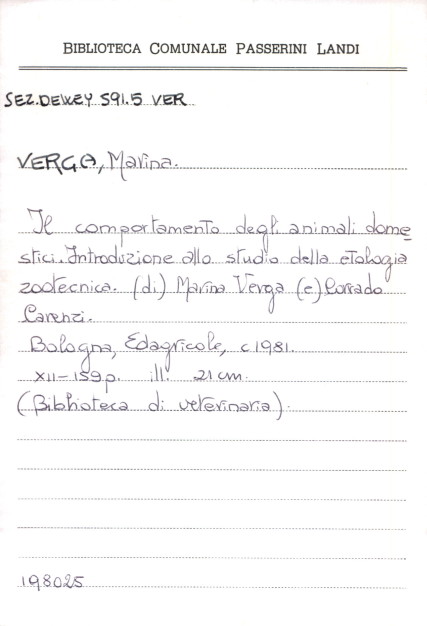 BIBLIOTECA COMUNALE PASSERINI LANDI
SEZ.DEWEY 591.5 VER
VERGA, Marina.
Il comportamento degli animali dome
stici. Introduzione allo studio della etologia
zootecnica. (di) Marina Verga (e) Corrado
Carenzi.
Bologna, Edagricole, c1981.
XII-159p. ill. 21 cm.
(Biblioteca di veterinaria).
198025